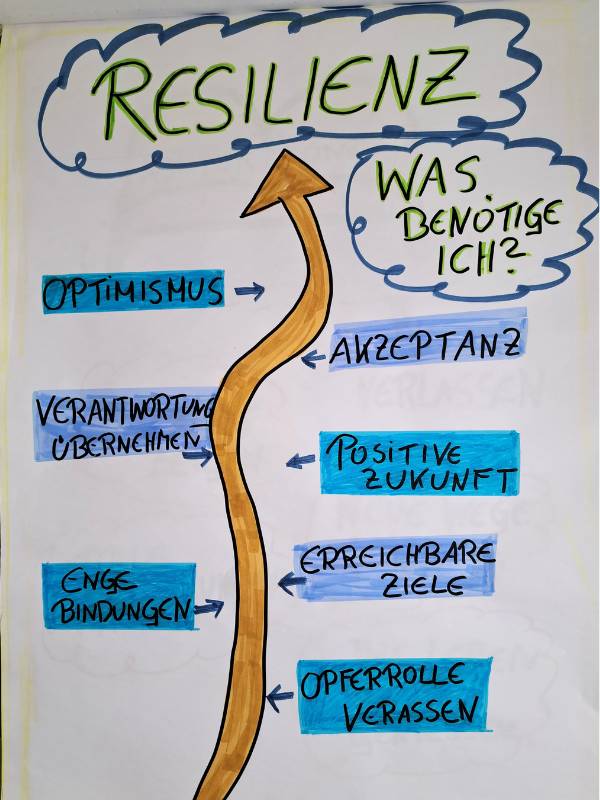 RESILIENZ
WAS
BENÖTIGE
ICH?
OPTIMISMUS
AKZEPTANZ
VERANTWORTUNG
ÜBERNEHMEN
POSITIVE
ZUKUNFT
ERREICHBARE
ZIELE
ENGE
BINDUNGEN
OPFERROLLE
VERASSEN